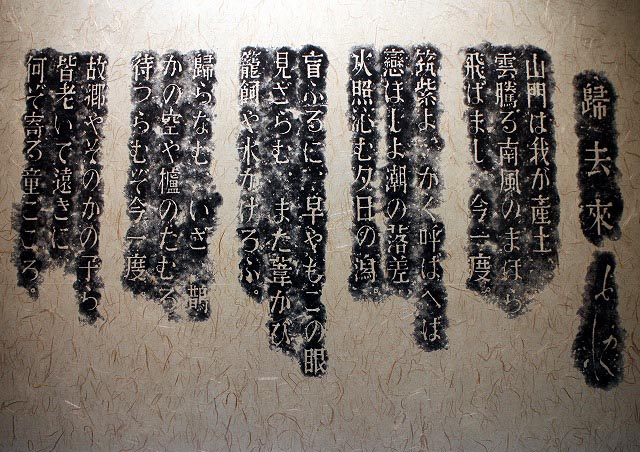 歸去來
山門は我が產土
雲騰る南風のまほら
飛ばまし 今一度
筑紫よ…かく呼ばへば
戀ほしよ潮の落差
火照沁む夕日の潟。
盲ふるに…早やもこの眼
見ざらむ また葦かび
籠飼や水かげろふ。
歸らなむ いざ 鵲
かの空や櫨のたむろ
待つらむぞ今一度
故鄕やそのかの子ら
皆老いて遠きに
何ぞ寄る童ごころ。